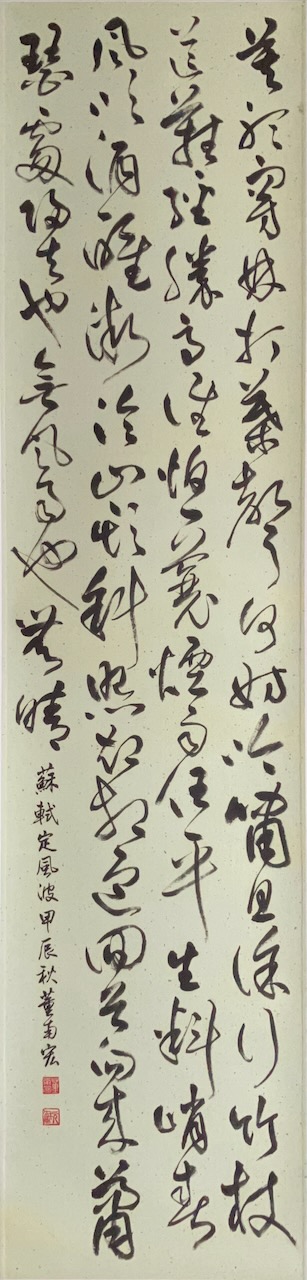 莫聽穿林打葉聲何妨吟嘯且徐行竹杖
芒鞋輕勝馬誰怕一蓑煙雨任平生料峭春
風吹酒醒微冷山頭斜照卻相迎回首向來蕭
瑟處歸去也無風雨也無晴
蘇軾定風波甲辰秋董宏